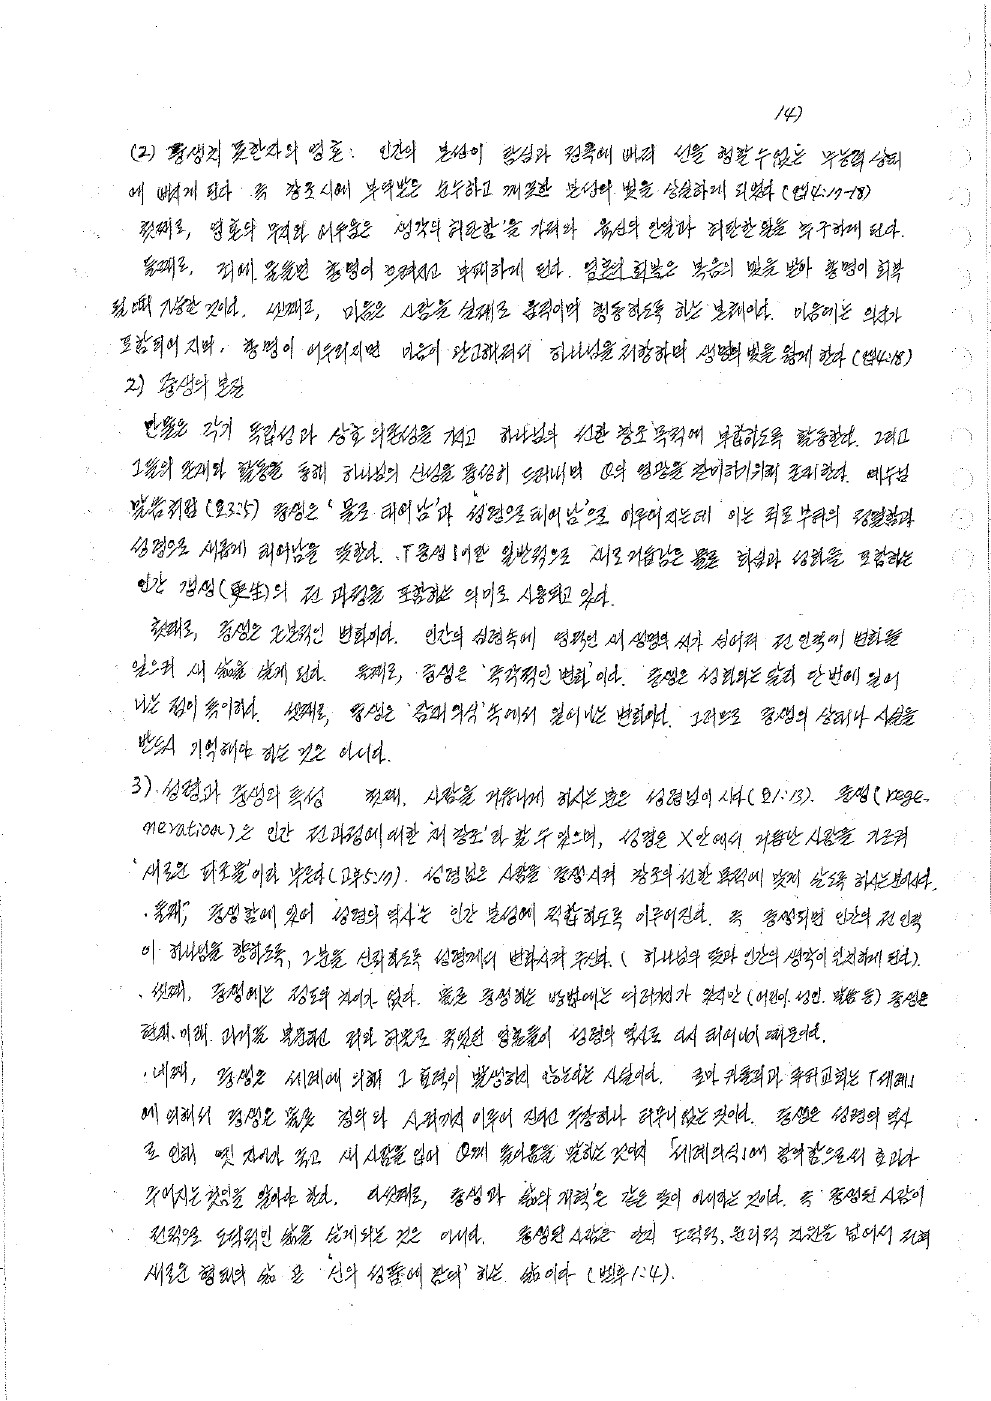 147
(2) 중생치 못한자의 영혼: 인간의 본성이 탐심과 정욕에 빠져 선을 행할 수 없는 무능력 상태
에 빠지게 된다 즉 창조시에 부여받은 순수하고 깨끗한 본성의 빛을 상실하게 되었다 (엡4:17-18)
첫째로, 영혼의 무지와 어두움은 '생각의 허탄함'을 가져와 육신의 안일과 허탄한 일을 추구하게 된다.
둘째로, 죄에 물들면 총명이 흐려지고 부패하게 된다. 영혼의 회복은 복음의 빛을 받아 총명이 회복
될 때 가능한 것이다. 셋째로, 마음은 사람을 실제로 움직이며 행동하도록 하는 본체이다. 마음에는 의지가
포함되어 지며, 총명이 어두워지면 마음이 완고해져서 하나님을 저항하며 생명의 빛을 잃게 한다 (엡4:18)
2) 중생의 본질
만물은 각기 독립성과 상호 의존성을 가지고 하나님의 선한 창조 목적에 부합하도록 활동한다. 그리고
그들의 존재와 활동을 통해 하나님의 신성을 풍성히 드러내며 그의 영광을 찬미하기위해 존재한다. 예수님
말씀처럼 (요3:5) 중생은 '물로 태어남'과 '성령으로 태어남'으로 이루어지는데 이는 죄로 부터의 정결함과
성령으로 새롭게 태어남을 뜻한다. 「중생」이란 일반적으로 새로 거듭남은 물론 회심과 성화를 포함하는
인간 갱생(更生)의 전 과정을 포함하는 의미로 사용되고 있다.
첫째로, 중생은 근본적인 변화이다. 인간의 심령속에 영적인 새 생명의 씨가 심어져 전 인격에 변화를
일으켜 새 삶을 살게 된다. 둘째로, 중생은 '즉각적인 변화'이다. 중생은 성화와는 달리 단 번에 일어
나는 점이 특이하다. 셋째로, 중생은 '잠재의식' 속에서 일어나는 변화이다. 그러므로 중생의 상태나 사실을
반드시 기억해야 하는 것은 아니다.
3). 성령과 중생의 특성 첫째, 사람을 거듭나게 하시는 분은 성령님이시다 (요1:13). 중생 (rege-
neration)은 인간 전 과정에 대한 '재 창조'라 할 수 있으며, 성경은 X안에서 거듭난 사람을 가르켜
'새로운 피조물'이라 부른다 (고후5:17). 성령님은 사람을 중생시켜 창조의 선한 목적에 맞게 살도록 하시는 분이시다.
둘째, 중생함에 있어 성령의 역사는 인간 본성에 적합하도록 이루어진다. 즉 중생되면 인간의 전 인격
이 하나님을 향하도록, 그분을 신뢰하도록 성령께서 변화시켜 주신다. (하나님의 뜻과 인간의 생각이 일치하게 된다).
셋째, 중생에는 정도의 차이가 없다. 물론 중생하는 방법에는 여러가지가 있지만 (어린이. 성인. 말씀 등) 중생은
현재. 미래. 과거를 불문하고 죄와 허물로 죽었던 영혼들이 성령의 역사로 다시 태어나기 때문이다.
넷째, 중생은 세례에 의해 그 효력이 발생하지 않는다는 사실이다. 로마 카톨릭과 루터교회는 「세례」
에 의해서 중생은 물론 칭의와 사죄까지 이루어 진다고 주장하나 터무니 없는 것이다. 중생은 성령의 역사
로 인해 옛 자아가 죽고 새 사람을 입어 이에 들어옴을 말하는 것이며 「세례의식」에 참여함으로써 효과가
주어지는 것임을 알아야 한다. 다섯째로, 중생과 '삶의 개혁'은 같은 뜻이 아니라는 것이다. 즉 중생된 사람이
전적으로 도덕적인 삶을 살게되는 것은 아니다. 중생된 사람은 단지 도덕적. 윤리적 차원을 넘어서 전혀
새로운 형태의 삶 곧 '신의 성품에 참여' 하는 삶이다 (벧후1:4).